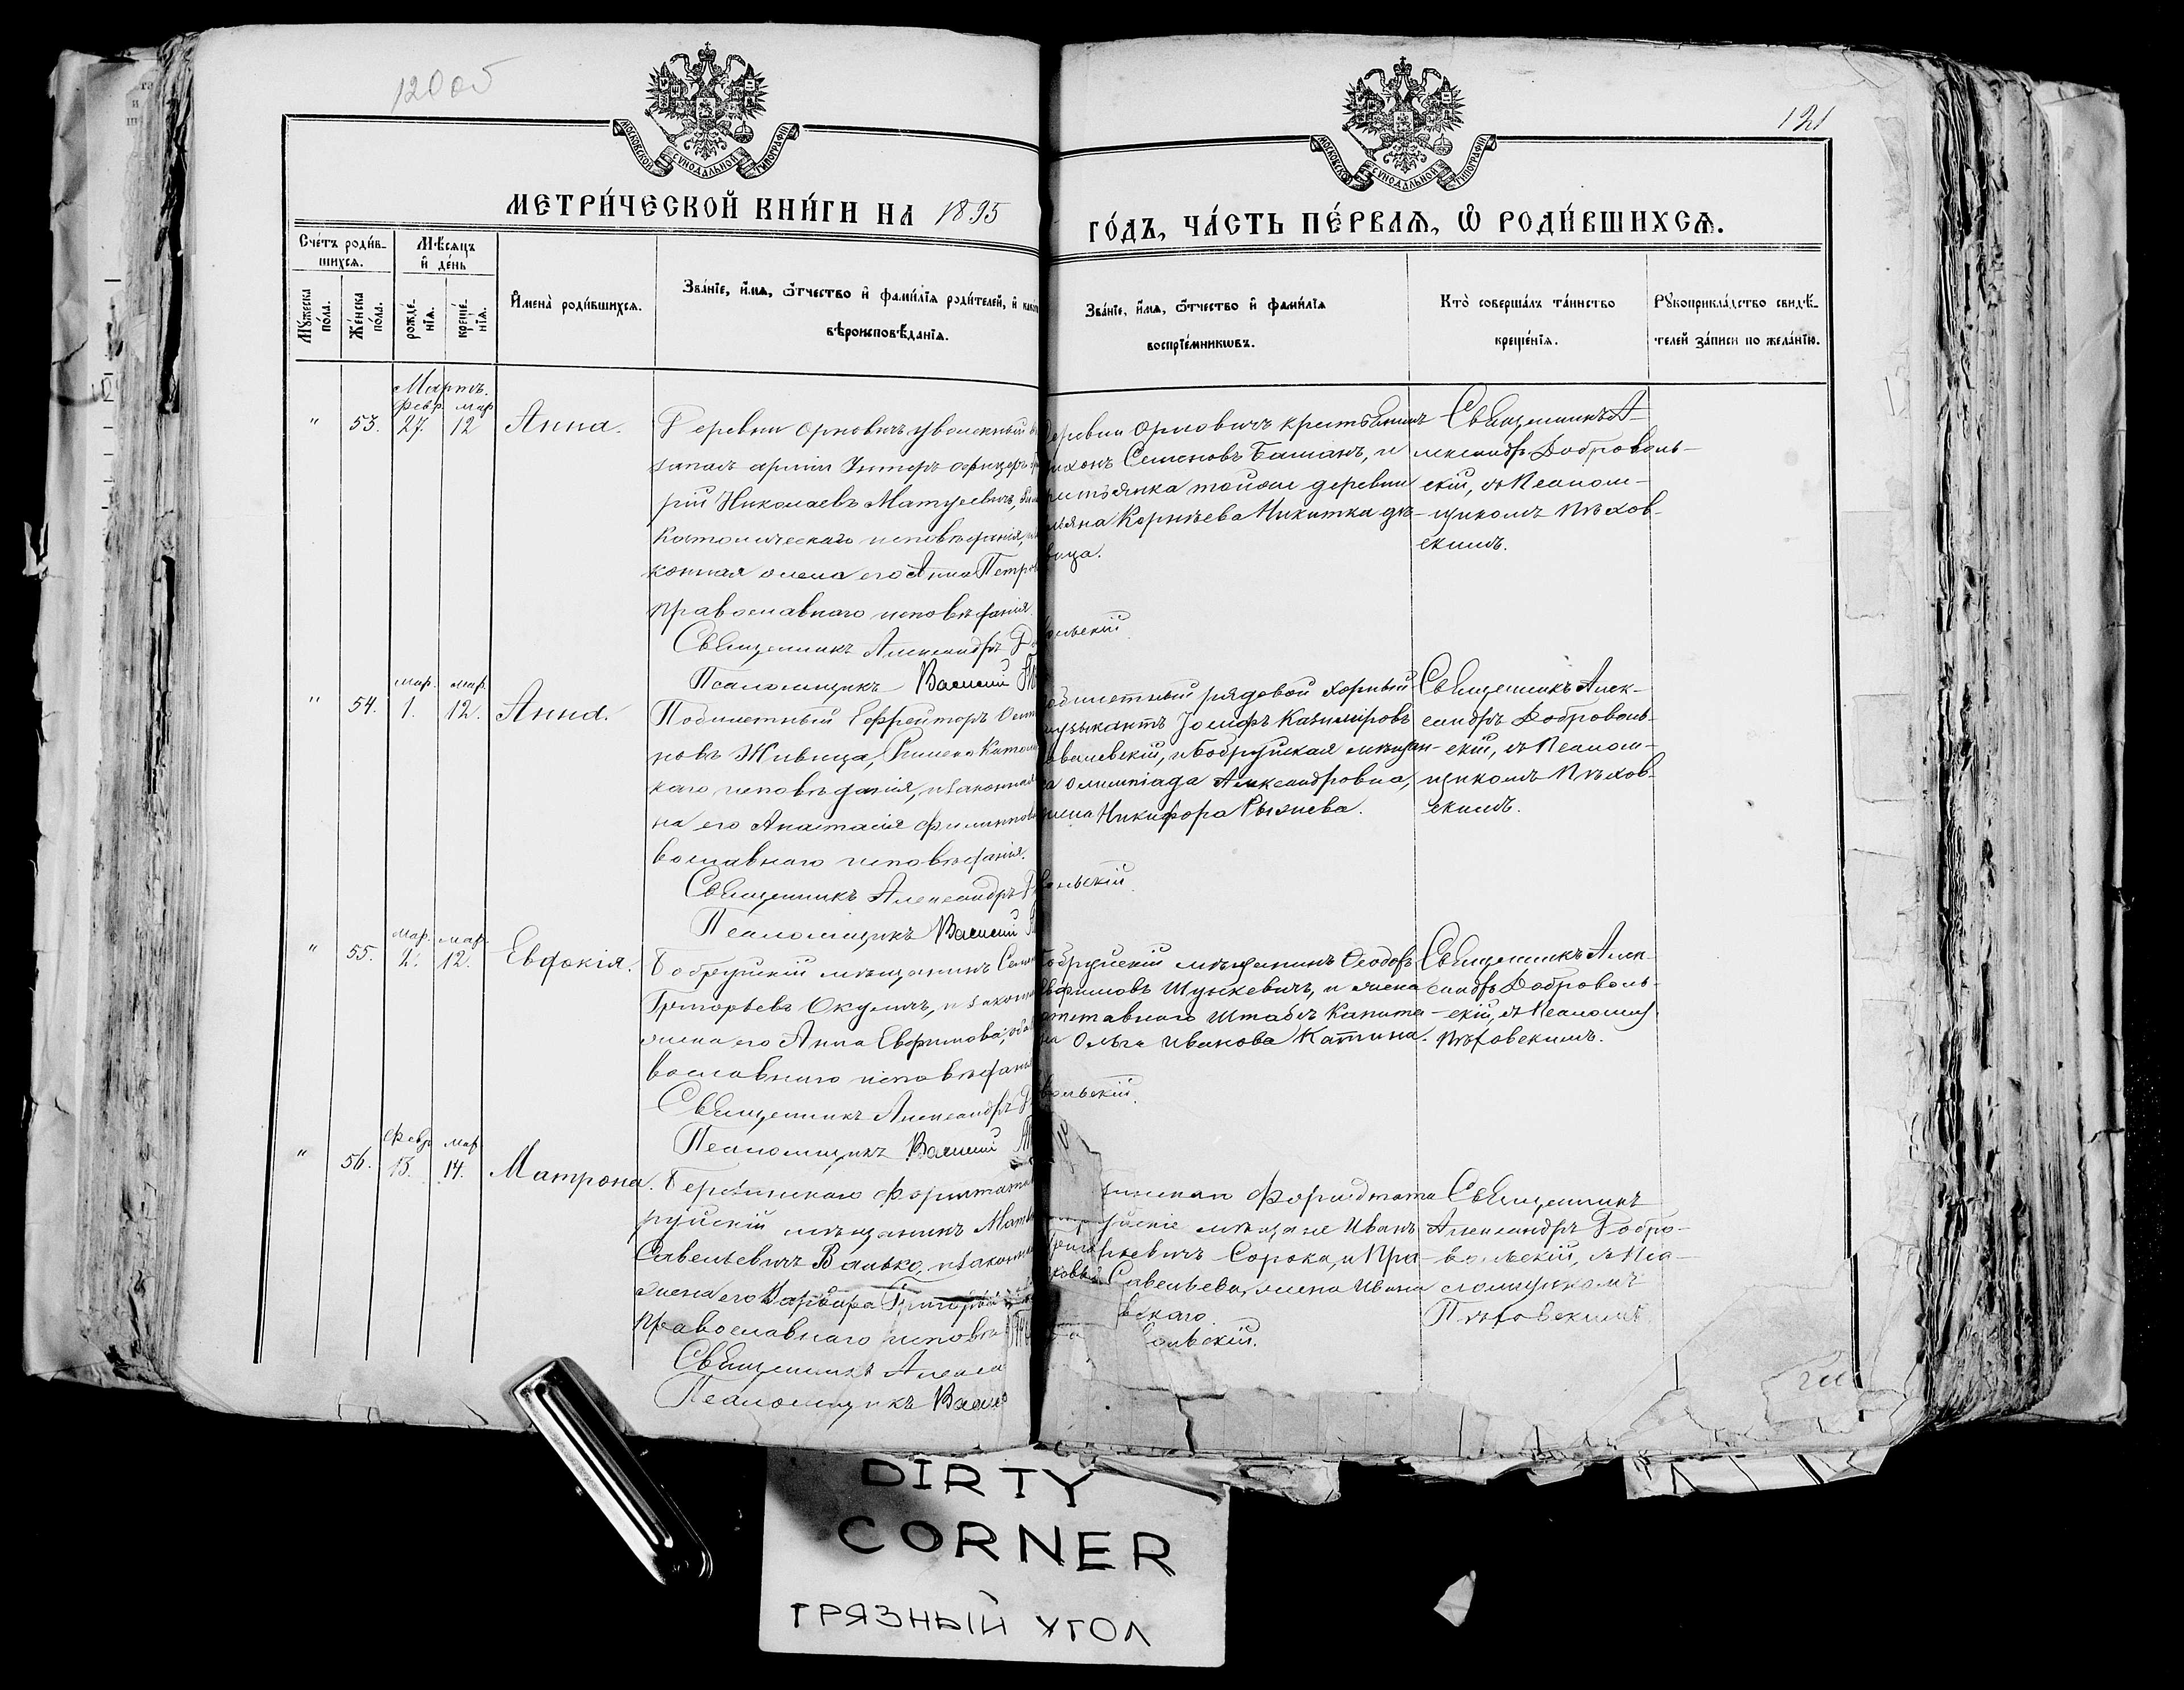 120 об
121
МОСКОВСКОЙ СѴНОДАЛЬНОЙ ТИПОГРАФІИ
МОСКОВСКОЙ СѴНОДАЛЬНОЙ ТИПОГРАФІИ
МЕТРИ́ЧЕСКОЙ КНИ́ГИ НА 1895
ГО́ДЪ, ЧА́СТЬ ПЕ́РВАѦ, Ѡ҆ РОДИ́ВШИХСѦ.
Сче́тъ роди́в-
шихсѧ.
Мѣ́сѧцъ
и҆ де́нь
Мꙋ́жеска
по́ла.
Же́нска
по́ла.
рожде́-
нїѧ.
креще́-
нїѧ.
И҆мена̀ роди́вшихсѧ.
Зва́нїе, и҆́мѧ, ѻ҆́тчество и҆ фами́лїѧ роди́телей, и҆
вѣроисповѣ́данїѧ.
Зва́нїе, и҆́мѧ, ѻ҆́тчество и҆ фами́лїѧ
воспрїе́мникѡвъ.
Кто̀ соверша́лъ та́инство
креще́нїѧ.
Рꙋкоприкла́дство свидѣ́-
телей за́писи по жела́нїю.
Мартъ.
Февр. мар
" 53. 27. 12 Анна.
Деревни Орловичъ уволенный въ
запасъ арміи Унтеръ офицеръ
рій Николаевъ Матусевичъ,
Католическаго исповѣданія,
конная жена его Анна Петров
православнаго исповѣданія.
Священникъ Александръ До
Псаломщикъ Василій
деревни Орловичъ крестьянинъ
Тихонъ Семеновъ Башанъ, и
крестьянка тойже деревни
Ульяна Корнѣева Никитка дѣ-
вица.
вольскій
Священникъ А-
лександръ Доброволь-
скій, съ Псалом-
щикомъ Пѣхов-
скимъ.
мар. мар.
" 54. 1. 12. Анна.
Побилетный Ефрейторъ Осип
повъ Живица, Римско Католи
каго исповѣданія, и законная
на его Анастасія Филиппов
вославнаго исповѣданія.
Священникъ Александръ Д
Псаломщикъ Василій
билетный рядовой хорный
музыкантъ Іосифъ Казиміровъ
овалевскій, и Бобруйская мѣщан-
ка Олимпіада Александровна,
жена Никифора Рылиева.
вольскій
Священникъ Алек-
сандръ Доброволь-
скій, съ Псалом-
щикомъ Пѣхов-
скимъ.
мар. мар.
" 55. 2. 12. Евдокія.
Бобруйскій мѣщанинъ Семе
Григорьевъ Окуличъ, и законная
жена его Анна Евфимова, оба
вославнаго исповѣдані
Священникъ Александръ Д
Псаломщикъ Василій
обруйскій мѣщанинъ Ѳеодоръ
Евфимовъ Шункевичъ, и жена
отставнаго Штабсъ Капита-
на Ольга Иванова Катина.
вольскій.
Священникъ Алек-
сандръ Доброволь-
скій, съ Псаломщ.
Пѣховскимъ.
Февр мар
" 56. 13. 14. Матрона.
Березинскаго форштата
руйскій мѣщанинъ Матв
Савельевичъ Валько, и законная
жена его Варвара Григорьев
православнаго исповѣ
Священникъ Алекса
Псаломщикъ Васил
инскаго Форштата
уйскіе мѣщане Иванъ
Григорьевичъ Сорока, и Пра-
ковья Савельева, жена Ивана
вскаго.
вольскій.
Священникъ
Александръ Добро-
вольскій, съ Пса-
ломщикомъ
Пѣховскимъ
DIRTY
CORNER
ГРЯЗНЫЙ УГОЛ